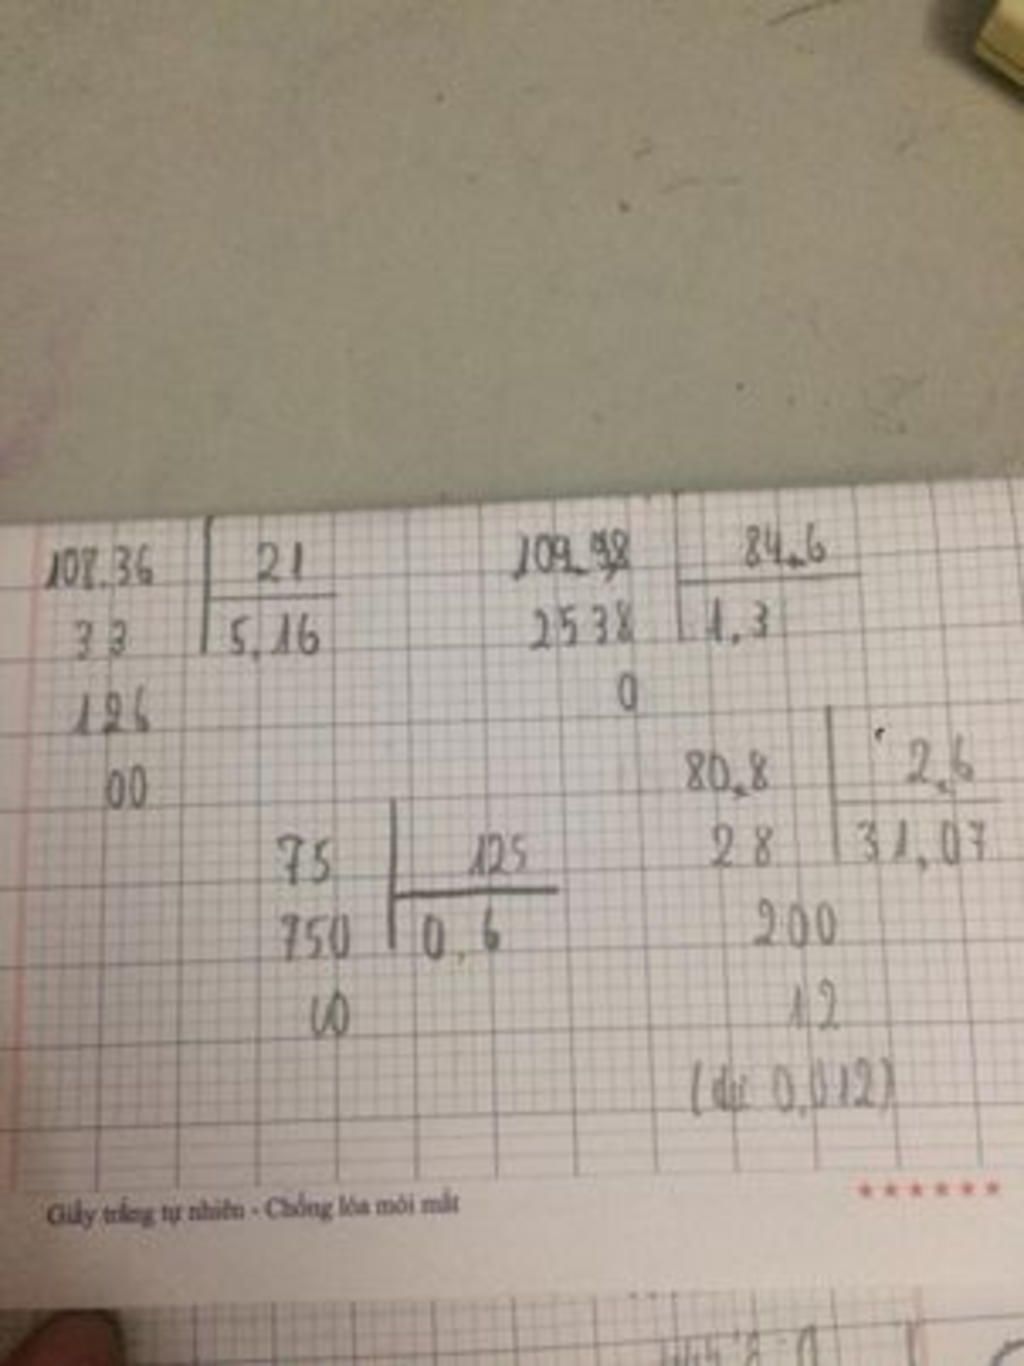 108,36 21
33 5,16
126
00
109,98 84,6
2538 1,3
0
75 125
750 0,6
00
80,8 2,6
28 31,07
200
12
(dư 0,012)
Giấy trắng tự nhiên - Chống lóa mỏi mắt